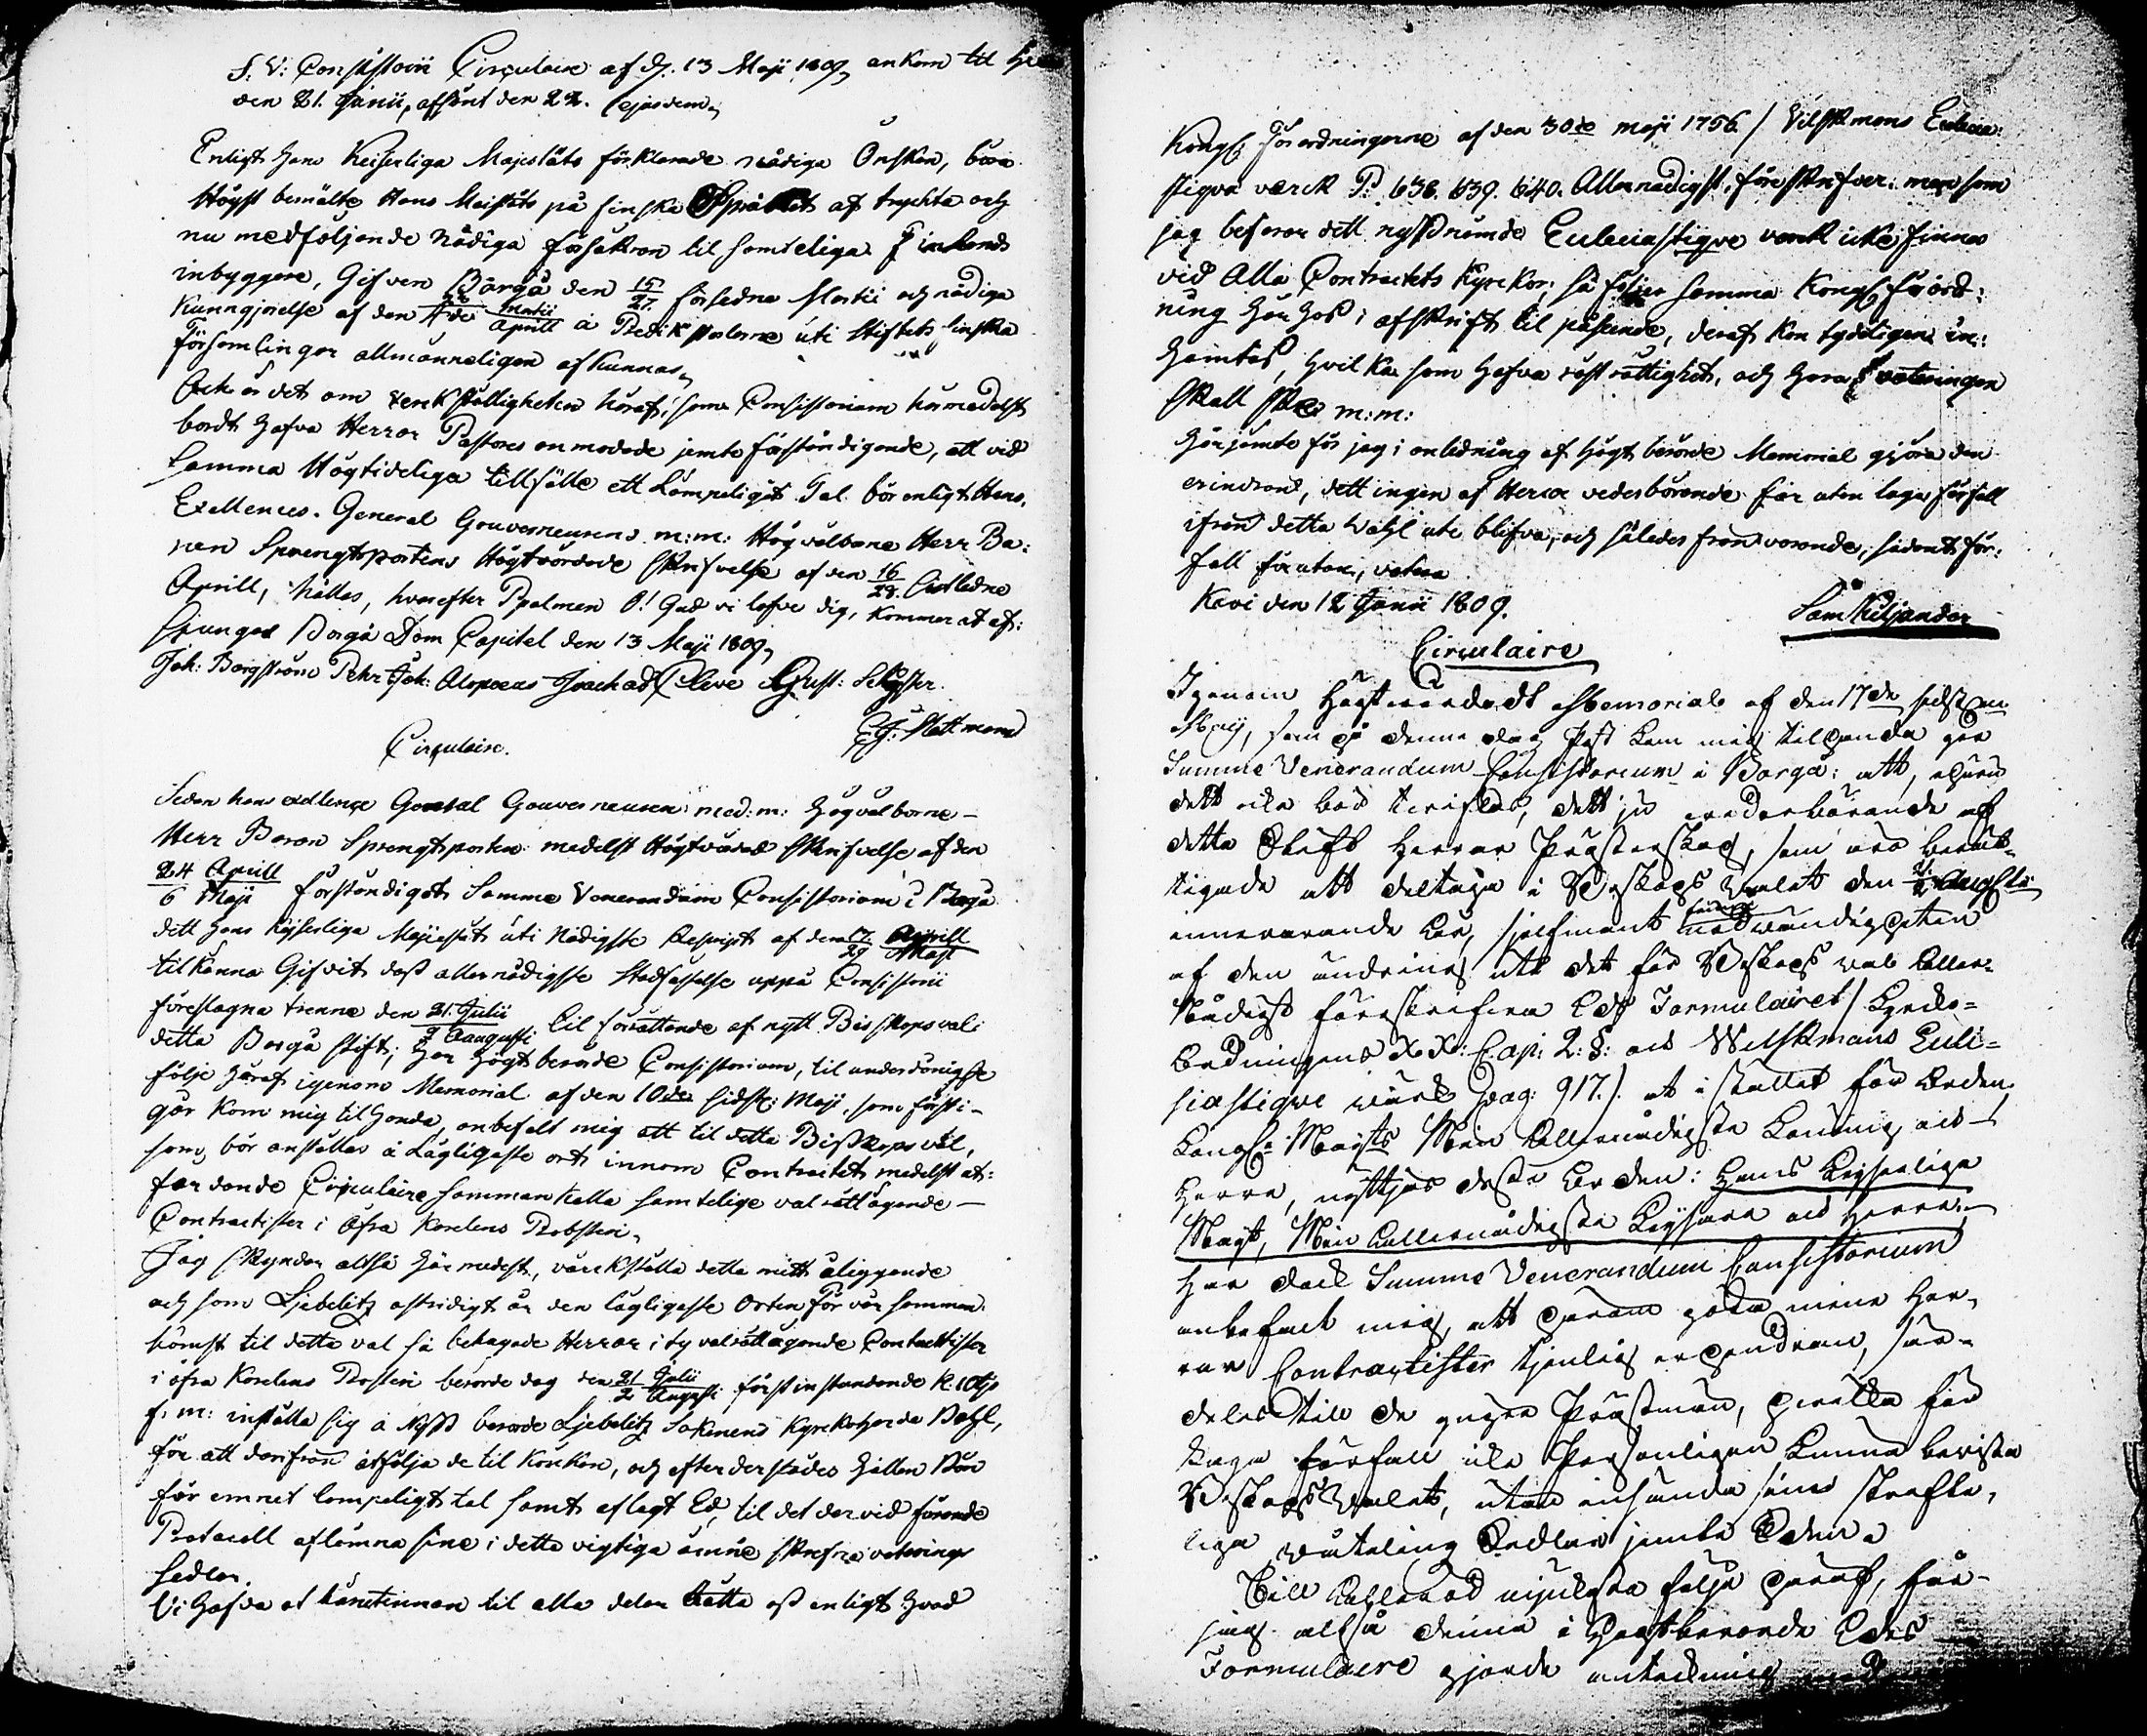 S: V: Consistorii Circulaire af d. 13 Maji 1809, ankom til
den 21. Junii, afsänt den 22. ejusdem,
Enligt Hans Keiserliga Majestäts förklarade nådiga Önskan, bör
Högst bemälte Hans Maistäts på finska Språket af tryckta och
nu medföljande nådiga försäkran til samteliga Finlands
inbyggare, Gifven Borgå den 15/27 förledne Martii och nådiga
Kunngjörelse af den Martii/Aprill å Predikstolarne uti Stiftets finska
församlingar allmänneligen afkunnas,
Och är det om verkställigheten häraf, som Consistorium härmedelst
bordt hafva Herrar Pastores anmodade jemte förständigande, att vid
samma Högtideliga tillfälle ett Lämpeligit Tal bör enligt Hans
Exellences General Gouverneurens m:m: Högvälborne Herr Ba:
ron Sprengtportens Högtvördade Skrifvelse af den 16/28 sistledne
Aprill, hålles, hvarefter Psalmen O! Gud vi lofve dig, kommer at af:
sjunges Borgå Dom Capitel den 13 Maji 1809,
Joh: Borgström Pehr Joh: Alopæus Joach ad Cleve Gust:
Circulaire.
Sedan hans exelence General Gouverneuren med: m: Högvälborne
Herr Baron Sprengtporten medelst Högtvärde Skrifvelse af den
24 Aprill/6 Maji förständigat Summe Venerandum Consistorium i Borgå
dett Hans Kejserliga Majestät uti Nådigste Rescript af den 17/29 Aprill/Maji
tilkänna Gifvit dess allernådigste Stadfästelse uppå Consistorii
föreslagna termne den 21. Julii/2 Augusti til förrättande af nytt Biskopsval i
detta Borgå stift; Har Högtberörde Consistorium, til underdånigste
följe häraf igenom Memorial af den 10de sidstl: Maji, som först i
går kom mig til Handa, anbefalt mig att til detta Biskops val,
som bör anställas å Lägligaste ort innom Contractet medelst ut:
färdande Circulaire sammankalla samtelige valrättägande
Contractister i Öfra Karelens Probsteri,
Jag skyndar altså Härmedelst, värckställa detta mitt åliggande
och som Ljebelitz ostridigt är den lägligaste Orten för vår samman
komst til detta val så behagade Herrar i ty valrättägande Contractister
i öfra Karelens Prosteri berörde dag den 21 Julii/2 Augusti förstinstundande K: 10 tijo
f: m: inställa sig å Nyss berörde Ljebelitz Sokenens Kyrkoherde Bohl,
för att derifrån åtfölja de til Kÿrkan, och efter derstädes Hållen Bön
för ämnet Lämpeligt tal samt aflagt Ed, til det dervid förande
Protocoll aflämna sine i detta vigtiga ämne skrefne voterings
sedlar.
Vi Hafva at til alla delar Rätta oss enligt Hvad
Kongl: Förordningarne af den 30de Maji 1756 / Vilskmans Eclecia:
stiqva värck P: 638. 639. 640. Allernådigst, föreskrifver: men som
jag befarar dett nyssnämde Eclecia stiqve verck icke finnes
vid Alla Contractets Kyrckor; så följer samma Kongl. Förord:
ning Här Hos i afskrift til påseende, deraf kan tydeligen in:
Hämtas, Hvilka som Hafva röst rättighet, och Huru voteringen
skall ske m: m:
Härjämte får jag i anledning af Högt berörde Memorial gjöra den
erindran, dett ingen af Herrar vederbörande får utan laga förfall
ifrån detta Wahl ute blifva, och således frånvarande, sådant för:
fall förutan, votera
Kavi den 12 Junii 1809.
Sam Kiljander
Circulaire
Igenom Högtvördadt Memorial af den 17de sidstl
Maij, som på denna dag Post kom mig tilhanda har
Summe Venerandum Consistorium i Borgå:
detta Stift Herrar Prästerskap, som äro berät-
tigade att deltaga i Biskops Valet den 21/2 Augusti
innevarande år,
af den ändring uti det för Biskops val Aller-
Nådigst föreskrifven Eds Formulairet / Kyrko-
Ordningens XX: Cap: 2: §: och Wilskmans Ecle-
siastique värck pag: 917. /. at i stället för Orden
Kongl: Maijts Min Allernådigste Konung och
Herre, nyttjas desse Orden: Hans Keyserliga
Mayt, Min Allernådigste Keysare och Herre.
Har dock Summe Venerandum Consistorium
anbefalt mig, att härom göra mine Her-
rar Contractister tjenlig erhindran, sär-
deles till de gugse Prästmän, hvilka för
laga förfall icke Personligen kunna bevista
Biskops Valet, utan insända sina skrifte-
liga votering Sedlar jemte Eden.
Till följe häraf, får
jag altså denna i Högtberörde Eds
Formulaire gjorde